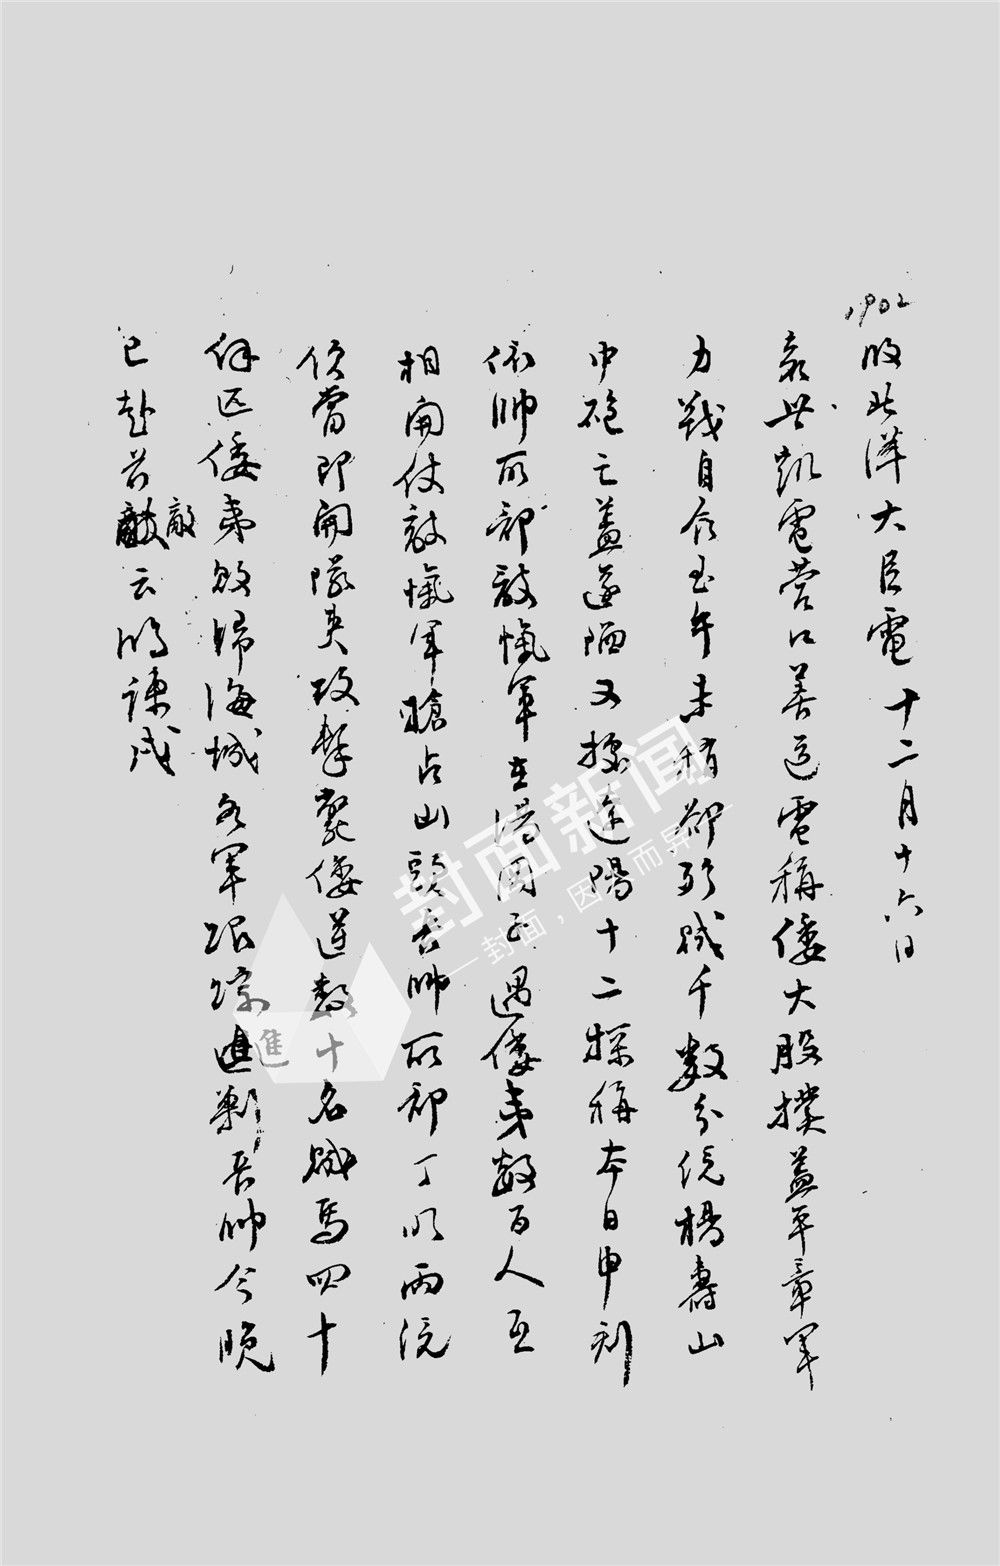 1902
收北洋大臣電 十二月十六日
袁世凱電營口善道電稱倭大股撲蓋平章軍
力戰自辰至午未稍卻斃賊千數分統楊壽山
中砲亡蓋遂陷又據遼陽十二探稱本日申刻
依帥所部敵愾軍在湯岡子遇倭 數百人互
相開仗敵愾軍搶占山頭長帥所部丁 兩統
領當即開隊夾攻擊斃倭 數十名賊馬四十
餘匹倭 敗歸海城各軍跟 進 長帥今晚
已赴前敵云
敵
進
封面新闻
封面,因 而异